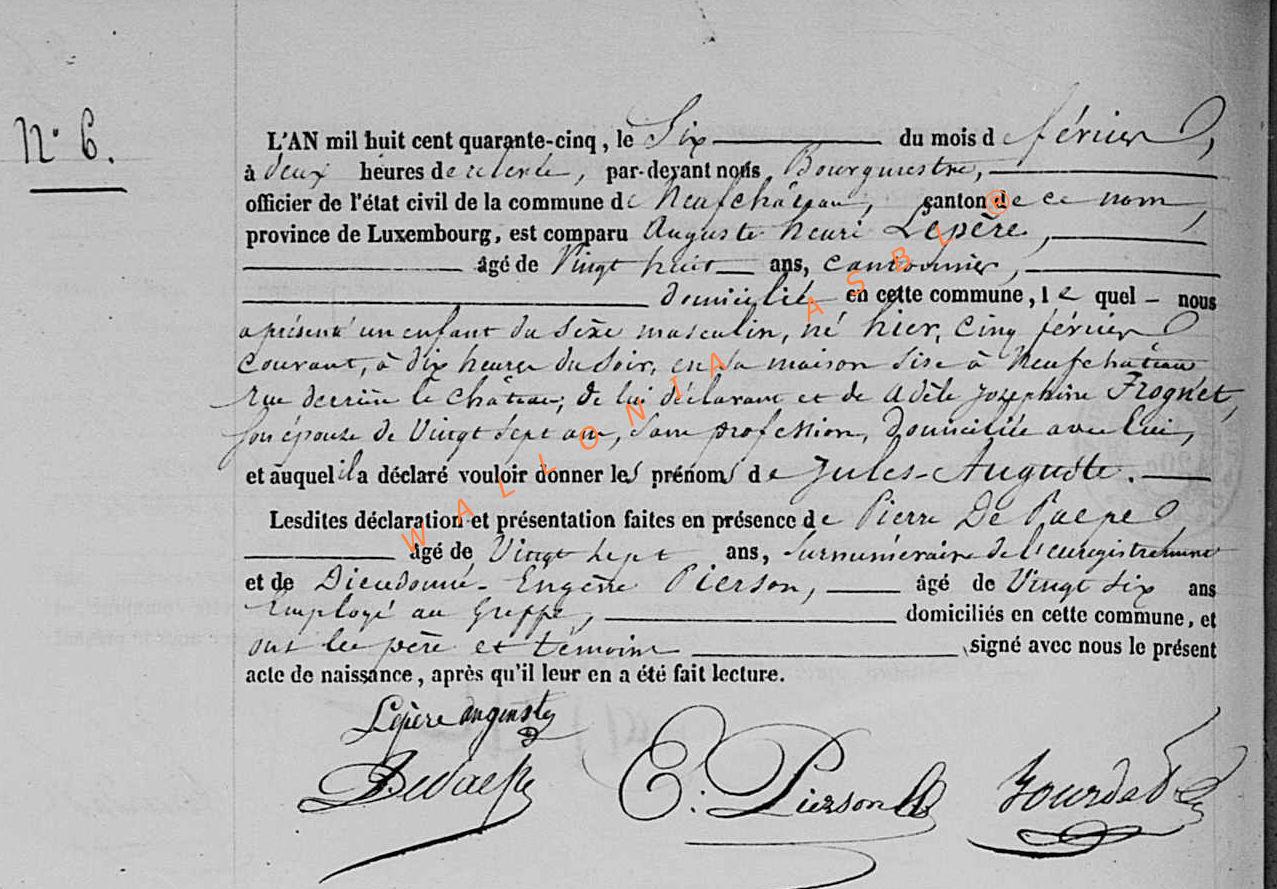 N° 6.
L'AN mil huit cent quarante-cinq, le Six du mois de février,
à deux heures de relevée, par-devant nous Bourgmestre,
officier de l'état civil de la commune de Neufchâteau, canton de ce nom,
province de Luxembourg, est comparu Auguste henri Lepère,
âgé de Vingt huit ans, cantonnier,
domicilié en cette commune, lequel nous
a présenté un enfant du sèxe masculin, né hier, cinq février
courant, à dix heures du soir, en sa maison sise à Neufchâteau
rue derrière le château, de lui déclarant et de adèle Josephine Frognet,
son épouse de Vingt sept ans, sans profession, domiciliée avec lui,
et auquel il a déclaré vouloir donner les prénoms de Jules-Auguste.
Lesdites déclaration et présentation faites en présence de Pierre De Paepe
âgé de Vingt sept ans, surnuméraire de l'enregistrement
et de Dieudonné-Eugène Pierson, âgé de Vingt Six ans
Employé au Greffe, domiciliés en cette commune, et
ont les père et témoins signé avec nous le présent
acte de naissance, après qu'il leur en a été fait lecture.
Lepère auguste
DePaepe
E. Pierson
WALLONIA ASBL @